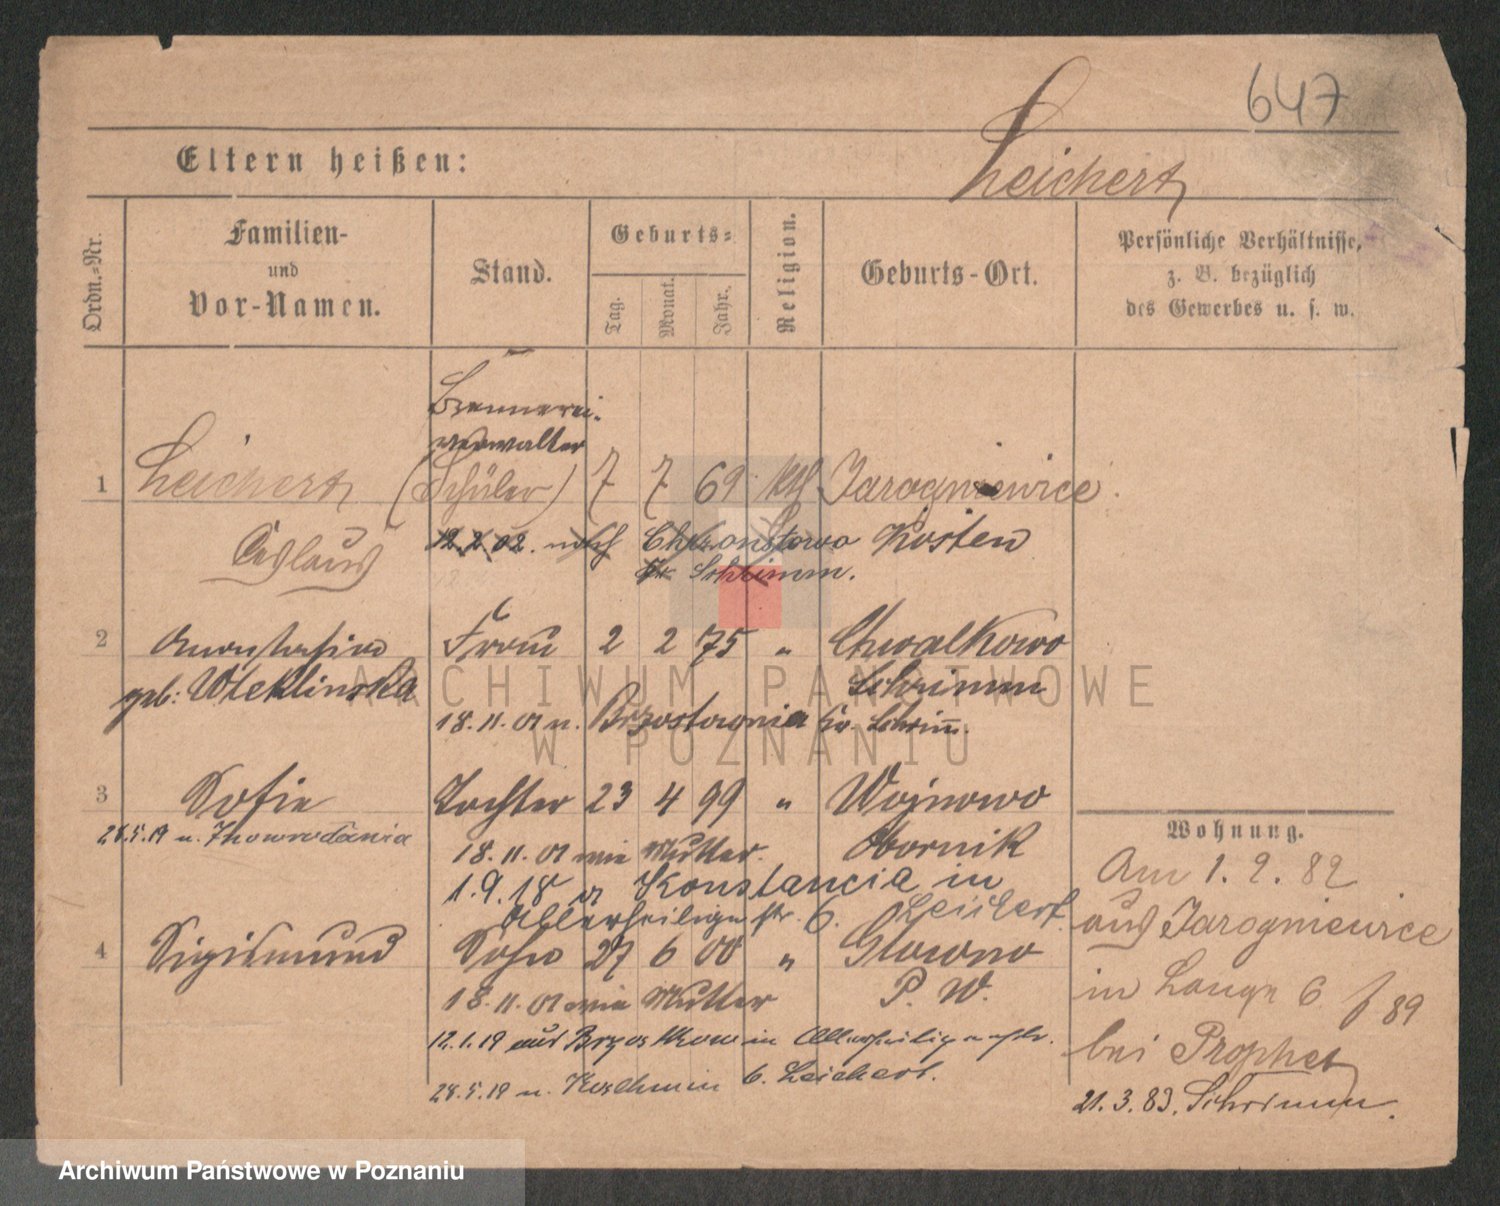 647
Eltern heißen:
Leichert
Ordn.-Nr.
Familien-
und
Vor-Namen.
Stand.
Geburts-
Tag.
Monat.
Jahr.
Religion.
Geburts-Ort.
Persönliche Verhältnisse,
z. B. bezüglich
des Gewerbes u. s. w.
Brennerei-
verwalter
1 Leichert (Schüler) 7 7 69 kth Jarogniewice
Ceslaus
12.2.02. nach Chrzonstowo Kosten
Kr. Schrimm.
2 Anastasia Frau 2 2 75 " Chwalkowo
geb: Wteklinska Schrimm
18.11.01 n. Brzostownia Kr. Schrim.
3 Sofie Tochter 23 4 99 " Wojnowo
28.5.19 n. Inowrodania
18.11.01 wie Mutter. Obornik
1.9.18 Konstancia in
Allerheiligenstr. 6. Leichert
4 Sigismund Sohn 27 6 00 " Glowno
18.11.01 wie Mutter P. W.
12.1.19 aus in Allerheiligenstr.
28.5.19 n. Koschmin 6. Leichert.
Wohnung.
Am 1. 2. 82
aus Jarogniewice
in Lange 6 f 89
bei Prophet
21.3.83. Schrimm.
ARCHIWUM PAŃSTWOWE
W POZNANIU
Archiwum Państwowe w Poznaniu